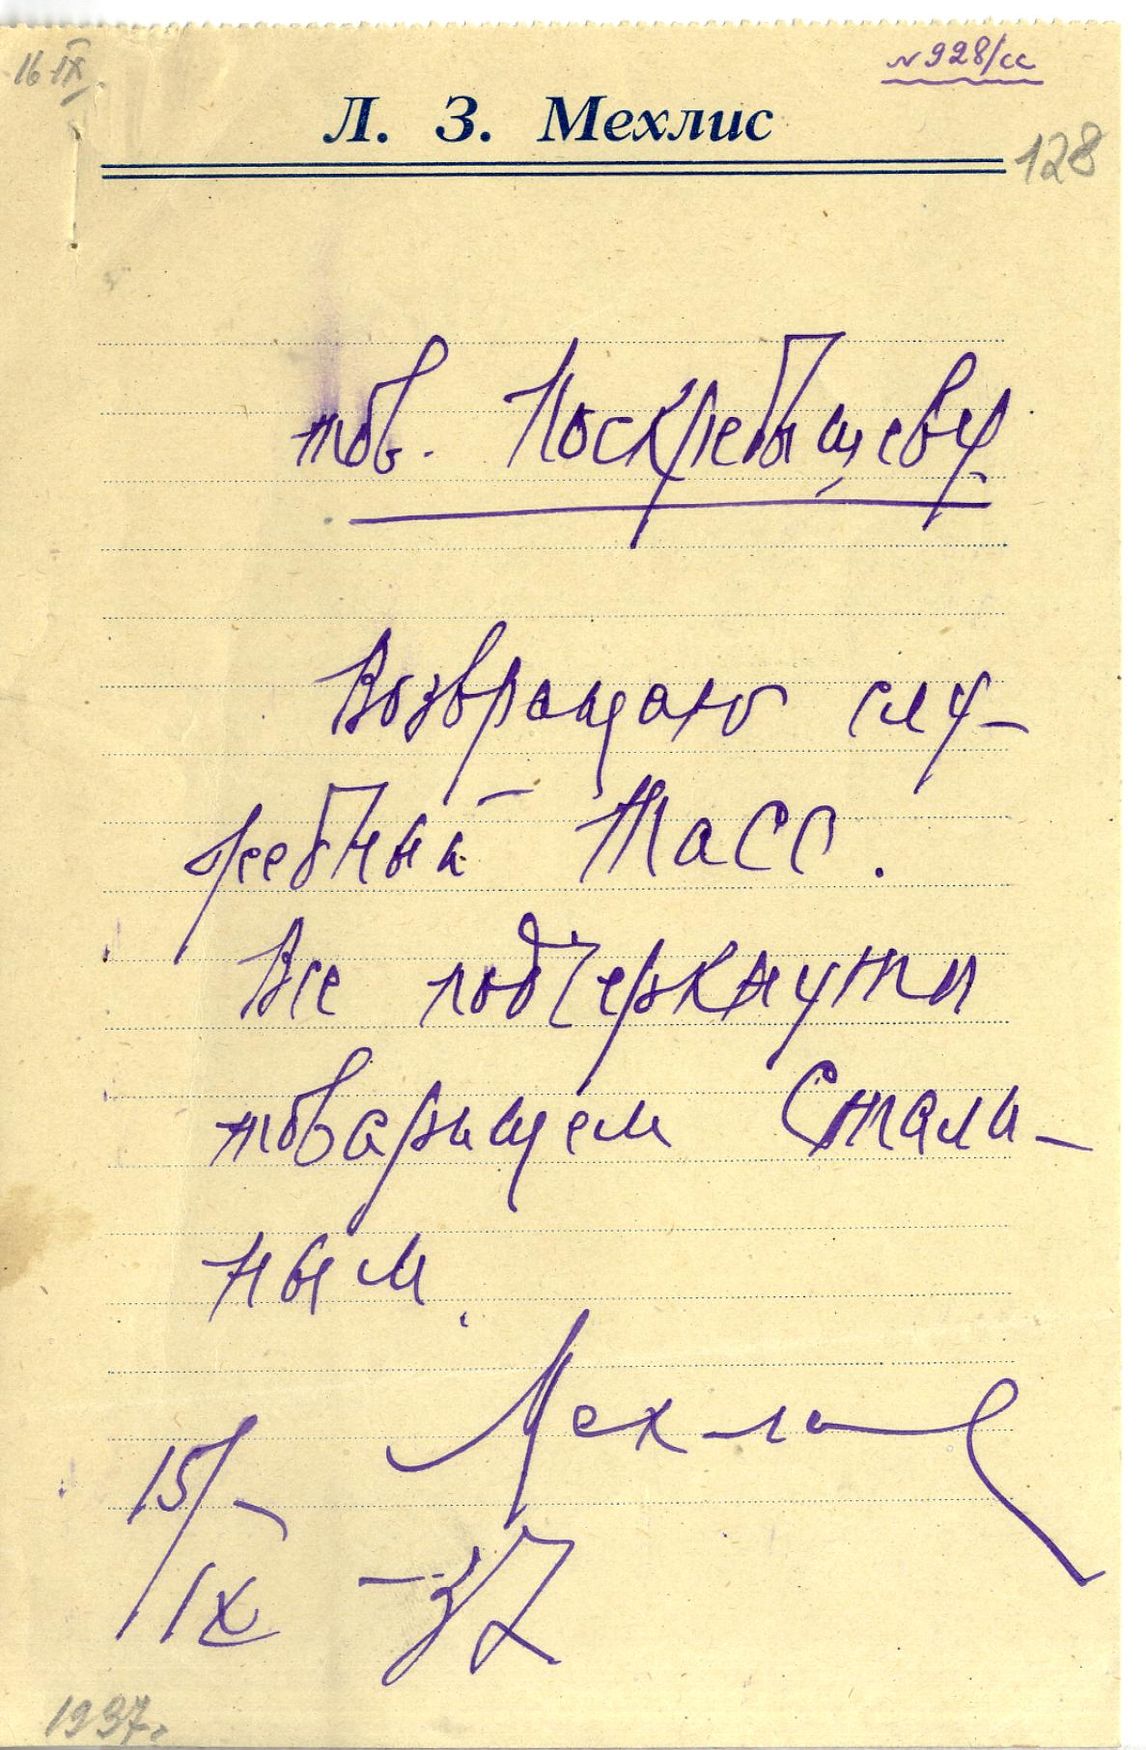 16 IX
№ 928/сс
Л. З. Мехлис
128
тов. Поскребышеву
Возвращаю слу-
жебный ТАСС.
Все подчеркнуто
товарищем Стали-
ным.
Мехлис
15/
IX -37
1937г.